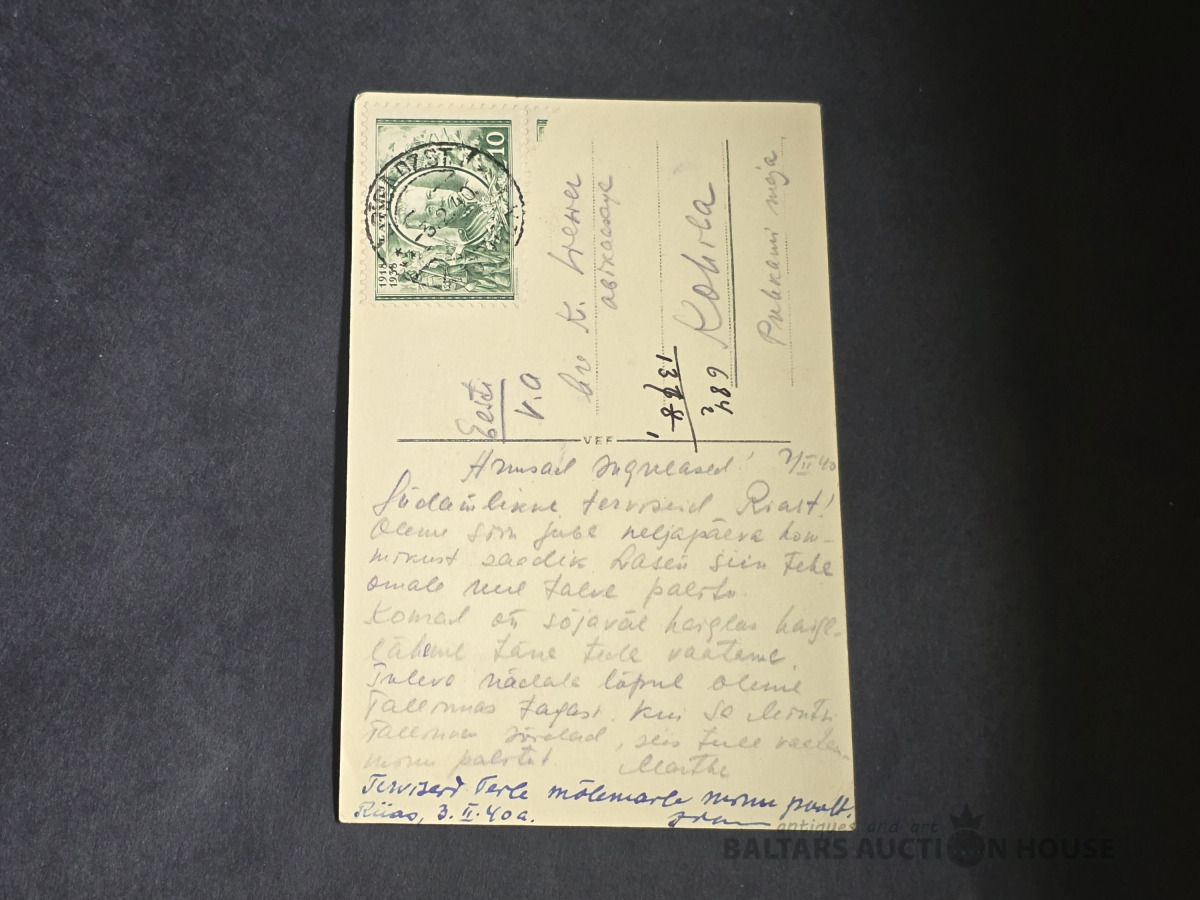 LATVIJA
1918
1938
10
3.2.40
Eesti
V.A
K.
Kohila
Puhkami maja
1378
684
VEF
Armsad sugulased! II 40
Südamlikke terviseid Riast!
Oleme siin juba neljapäeva hom-
mikust saadik. Lasen siin teha
omale uue talve palitu.
Konrad on sõjaväe haiglas haige
läheme täna teda vaatama.
Tuleva nädala lõpul oleme
Tallinnas tagasi. Kui Sa
Tallinna sõidad, siis tule vaatama
minu palitut. Marta
Tervised Teile mõlemaile minu poolt.
Riias, 3. II. 40 a.
antiques and art
BALTARS AUCTION HOUSE